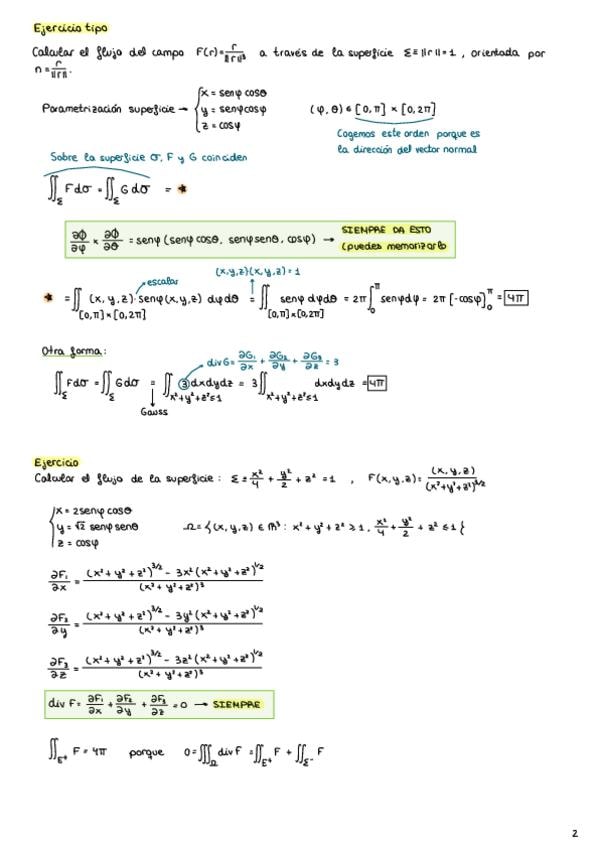 Ejercicio tipo
Calcular el flujo del campo F(r)= r/‖r‖³ a través de la superficie Σ≡ ‖r‖=1 , orientada por
n= r/‖r‖.
Parametrización superficie → { x = senφ cosθ
y = senφ cosφ
z = cosφ
(φ, θ) ∈ [0, π] × [0, 2π]
Cogemos este orden porque es
la dirección del vector normal
Sobre la superficie σ, F y G coinciden
∬_Σ F dσ = ∬_Σ G dσ = ★
∂Φ/∂φ × ∂Φ/∂θ = senφ (senφ cosθ, senφ senθ, cosφ) → SIEMPRE DA ESTO
(puedes memorizarlo
escalar
(x,y,z)(x,y,z) = 1
★ = ∬_[0,π]×[0,2π] (x, y, z) · senφ (x, y, z) dφdθ = ∬_[0,π]×[0,2π] senφ dφdθ = 2π ∫₀^π senφ dφ = 2π [-cosφ]₀^π = 4π
Otra forma:
div G = ∂G₁/∂x + ∂G₂/∂y + ∂G₃/∂z = 3
∬_Σ F dσ = ∬_Σ G dσ = ∬_x²+y²+z²≤1 3 dxdydz = 3 ∬_x²+y²+z²≤1 dxdydz = 4π
Gauss
Ejercicio
Calcular el flujo de la superficie : Σ ≡ x²/4 + y²/2 + z² = 1 , F(x,y,z) = (x, y, z)/(x²+y²+z²)^3/2
{ x = 2senφ cosθ
y = √2 senφ senθ
z = cosφ
Ω = {(x, y, z) ∈ ℝ³ : x² + y² + z² ≥ 1 , x²/4 + y²/2 + z² ≤ 1}
∂F₁/∂x = ((x² + y² + z²)^3/2 - 3x² (x² + y² + z²)^1/2)/(x² + y² + z²)³
∂F₂/∂y = ((x² + y² + z²)^3/2 - 3y² (x² + y² + z²)^1/2)/(x² + y² + z²)³
∂F₃/∂z = ((x² + y² + z²)^3/2 - 3z² (x² + y² + z²)^1/2)/(x² + y² + z²)³
div F = ∂F₁/∂x + ∂F₂/∂y + ∂F₃/∂z = 0 → SIEMPRE
∬_Σ⁺ F = 4π porque 0 = ∭_Ω div F = ∬_Σ⁺ F + ∬_Σ⁻ F
2